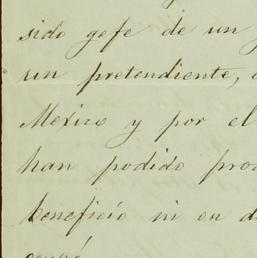 sido gefe de un
un pretendiente,
Mexico y por el
han podido
beneficio ni en